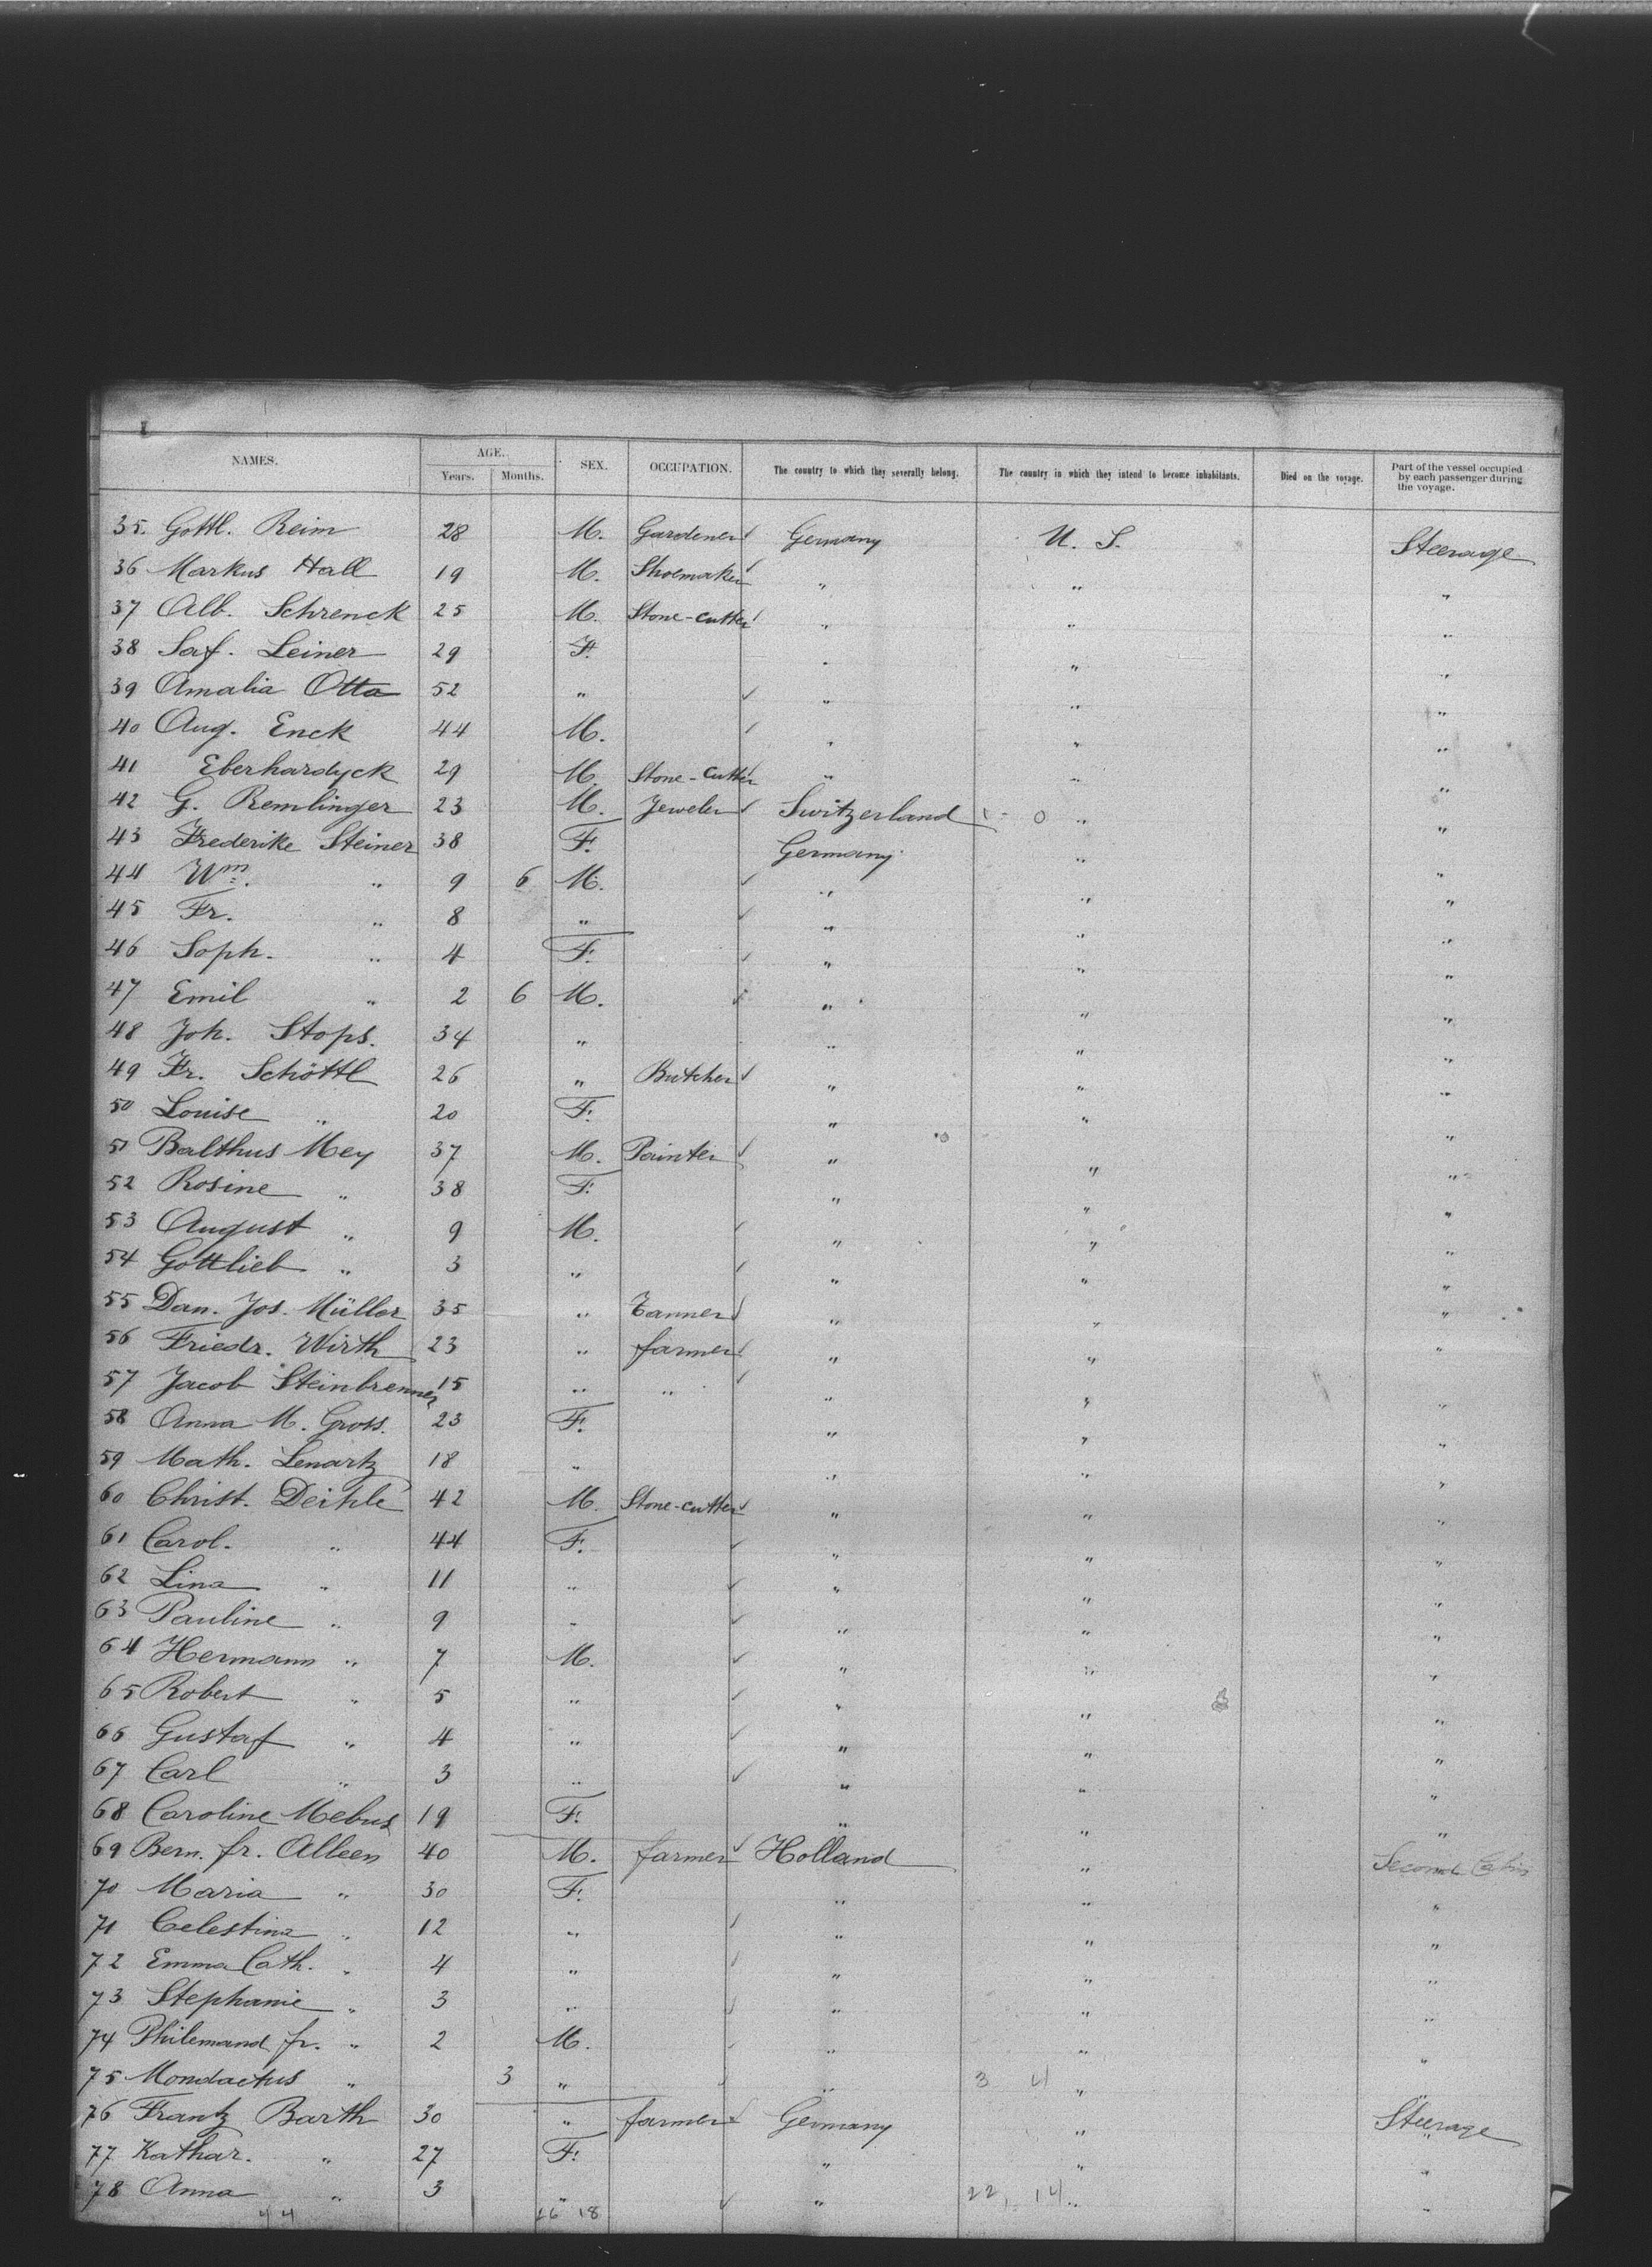 NAMES. AGE. Years. Months. SEX. OCCUPATION. The country to which they severally belong. The country in which they intend to become inhabitants. Died on the voyage. Part of the vessel occupied by each passenger during the voyage.
35. Gottl. Reim 28 M. Gardener Germany U. S. Steerage
36 Markus Hall 19 M. Shoemaker " " "
37 Alb. Schrenck 25 M. Stone-cutter " " "
38 Saf. Leiner 29 F. " " "
39 Amalia Otta 52 " " " "
40 Aug. Enck 44 M. " " "
41 Eberhardyck 29 M. Stone-cutter " " "
42 G. Remlinger 23 M. Jeweler Switzerland 1 - 0 " "
43 Frederike Steiner 38 F. Germany " "
44 Wm. " 9 6 M. " " "
45 Fr. " 8 " " " "
46 Soph. " 4 F. " " "
47 Emil " 2 6 M. " " "
48 Joh. Stops. 34 " " " "
49 Fr. Schöttl 26 " Butcher " " "
50 Louise " 20 F. " " "
51 Balthus Mey 37 M. Painter " " "
52 Rosine " 38 F. " " "
53 August " 9 M. " " "
54 Gottlieb " 3 " " " "
55 Dan. Jos. Müller 35 " Tanner " " "
56 Friedr. Wirth 23 " farmer " " "
57 Jacob Steinbrenner 15 " " " " "
58 Anna M. Gross. 23 F. " " "
59 Math. Lenartz 18 " " " "
60 Christ. Deihle 42 M. Stone-cutter " " "
61 Carol. " 44 F. " " "
62 Lina " 11 " " " "
63 Pauline " 9 " " " "
64 Hermann " 7 M. " " "
65 Robert " 5 " " " "
66 Gustaf " 4 " " " "
67 Carl " 3 " " " "
68 Caroline Mebus 19 F. " " "
69 Bern. fr. Alleen 40 M. farmer Holland " Second Cabin
70 Maria " 30 F. " " "
71 Celestina " 12 " " " "
72 Emma Cath. " 4 " " " "
73 Stephanie " 3 " " " "
74 Philemand fr. " 2 M. " " "
75 Mondactus " 3 " " 3 4 " "
76 Frantz Barth 30 " farmer Germany " Steerage
77 Kathar. " 27 F. " " "
78 Anna " 3 " " 22, 14 " "
44 26 18